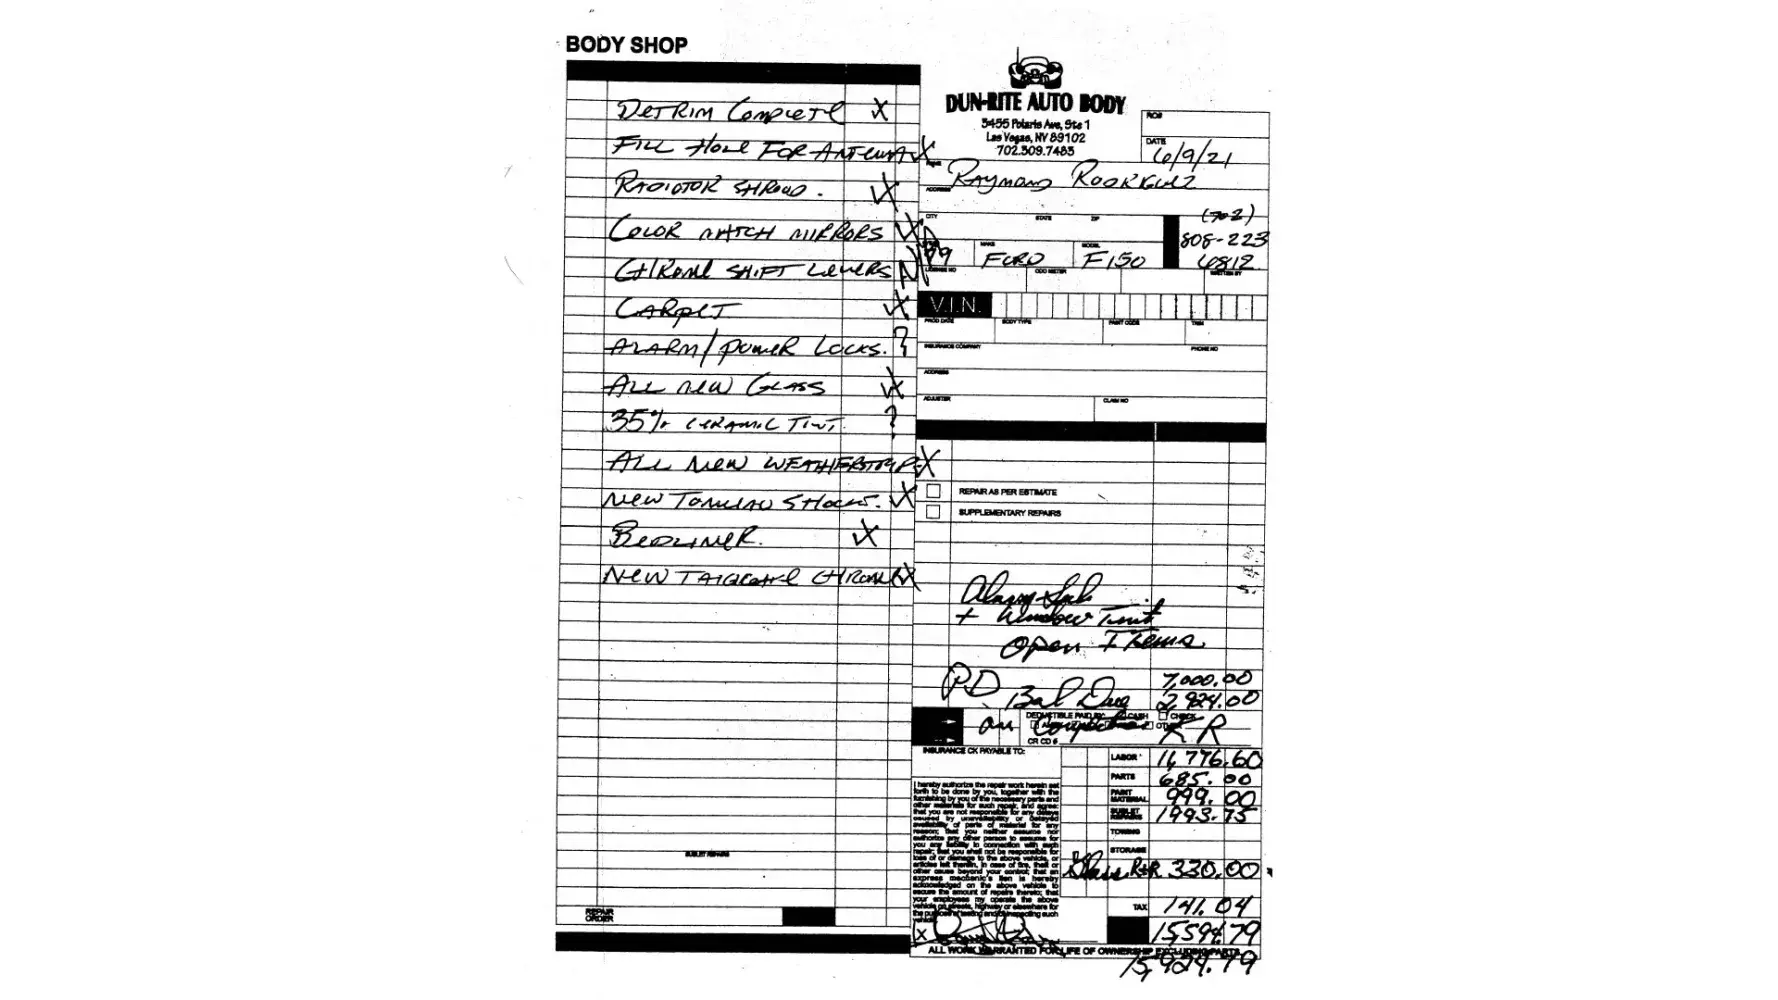 BODY SHOP
DETRIM COMPLETE X
FILL HOLE FOR ANTENNA X
RADIATOR SHROUD. X
COLOR MATCH MIRRORS X
CHROME SHIFT LEVERS
CARPET X
ALARM/POWER LOCKS. ?
ALL NEW GLASS X
35% CERAMIC TINT ?
ALL NEW WEATHERSTRIP X
NEW TONNEAU SHOCKS. X
BEDLINER. X
NEW TAILGATE CHROME X
SUBLET REPAIRS
REPAIR ORDER
DUN-RITE AUTO BODY
5455 Polaris Ave, Ste 1
Las Vegas, NV 89102
702.309.7483
RO#
DATE
6/9/21
NAME
RAYMOND RODRIGUEZ
ADDRESS
CITY STATE ZIP
(702)
808-223
6812
MAKE MODEL
99 FORD F150
LICENSE NO ODOMETER WRITTEN BY
V.I.N.
PROD DATE BODY TYPE PAINT CODE TRIM
INSURANCE COMPANY PHONE NO
ADDRESS
ADJUSTER CLAIM NO
REPAIR AS PER ESTIMATE
SUPPLEMENTARY REPAIRS
+ Window Tint
Open Items
PD 7,000.00
Bal Due 2,924.00
on Completion RR
DEDUCTIBLE PAID BY: CASH CHECK
CR CD #
INSURANCE CK PAYABLE TO:
LABOR 11,776.60
PARTS 685.00
PAINT MATERIAL 999.00
SUBLET REPAIRS 1993.75
TOWING
STORAGE
Glass R+R 330.00
TAX 141.04
15,594.79
I hereby authorize the repair work herein set
forth to be done by you, together with the
furnishing by you of the necessary parts and
other materials for such repair, and agree:
that you are not responsible for any delays
caused by unavailability or delayed
availability of parts of material for any
reason; that you neither assume nor
authorize any other person to assume for
you any liability in connection with such
repair; that you shall not be responsible for
loss of or damage to the above vehicle, or
articles left therein, in case of fire, theft or
other cause beyond your control; that an
express mechanic's lien is hereby
acknowledged on the above vehicle to
secure the amount of repairs thereto; that
your employees my operate the above
vehicle on streets, highway or elsewhere for
the purpose of testing and/or inspecting such
vehicle.
X
ALL WORK WARRANTED FOR LIFE OF OWNERSHIP EXCLUDING PARTS
15,924.79